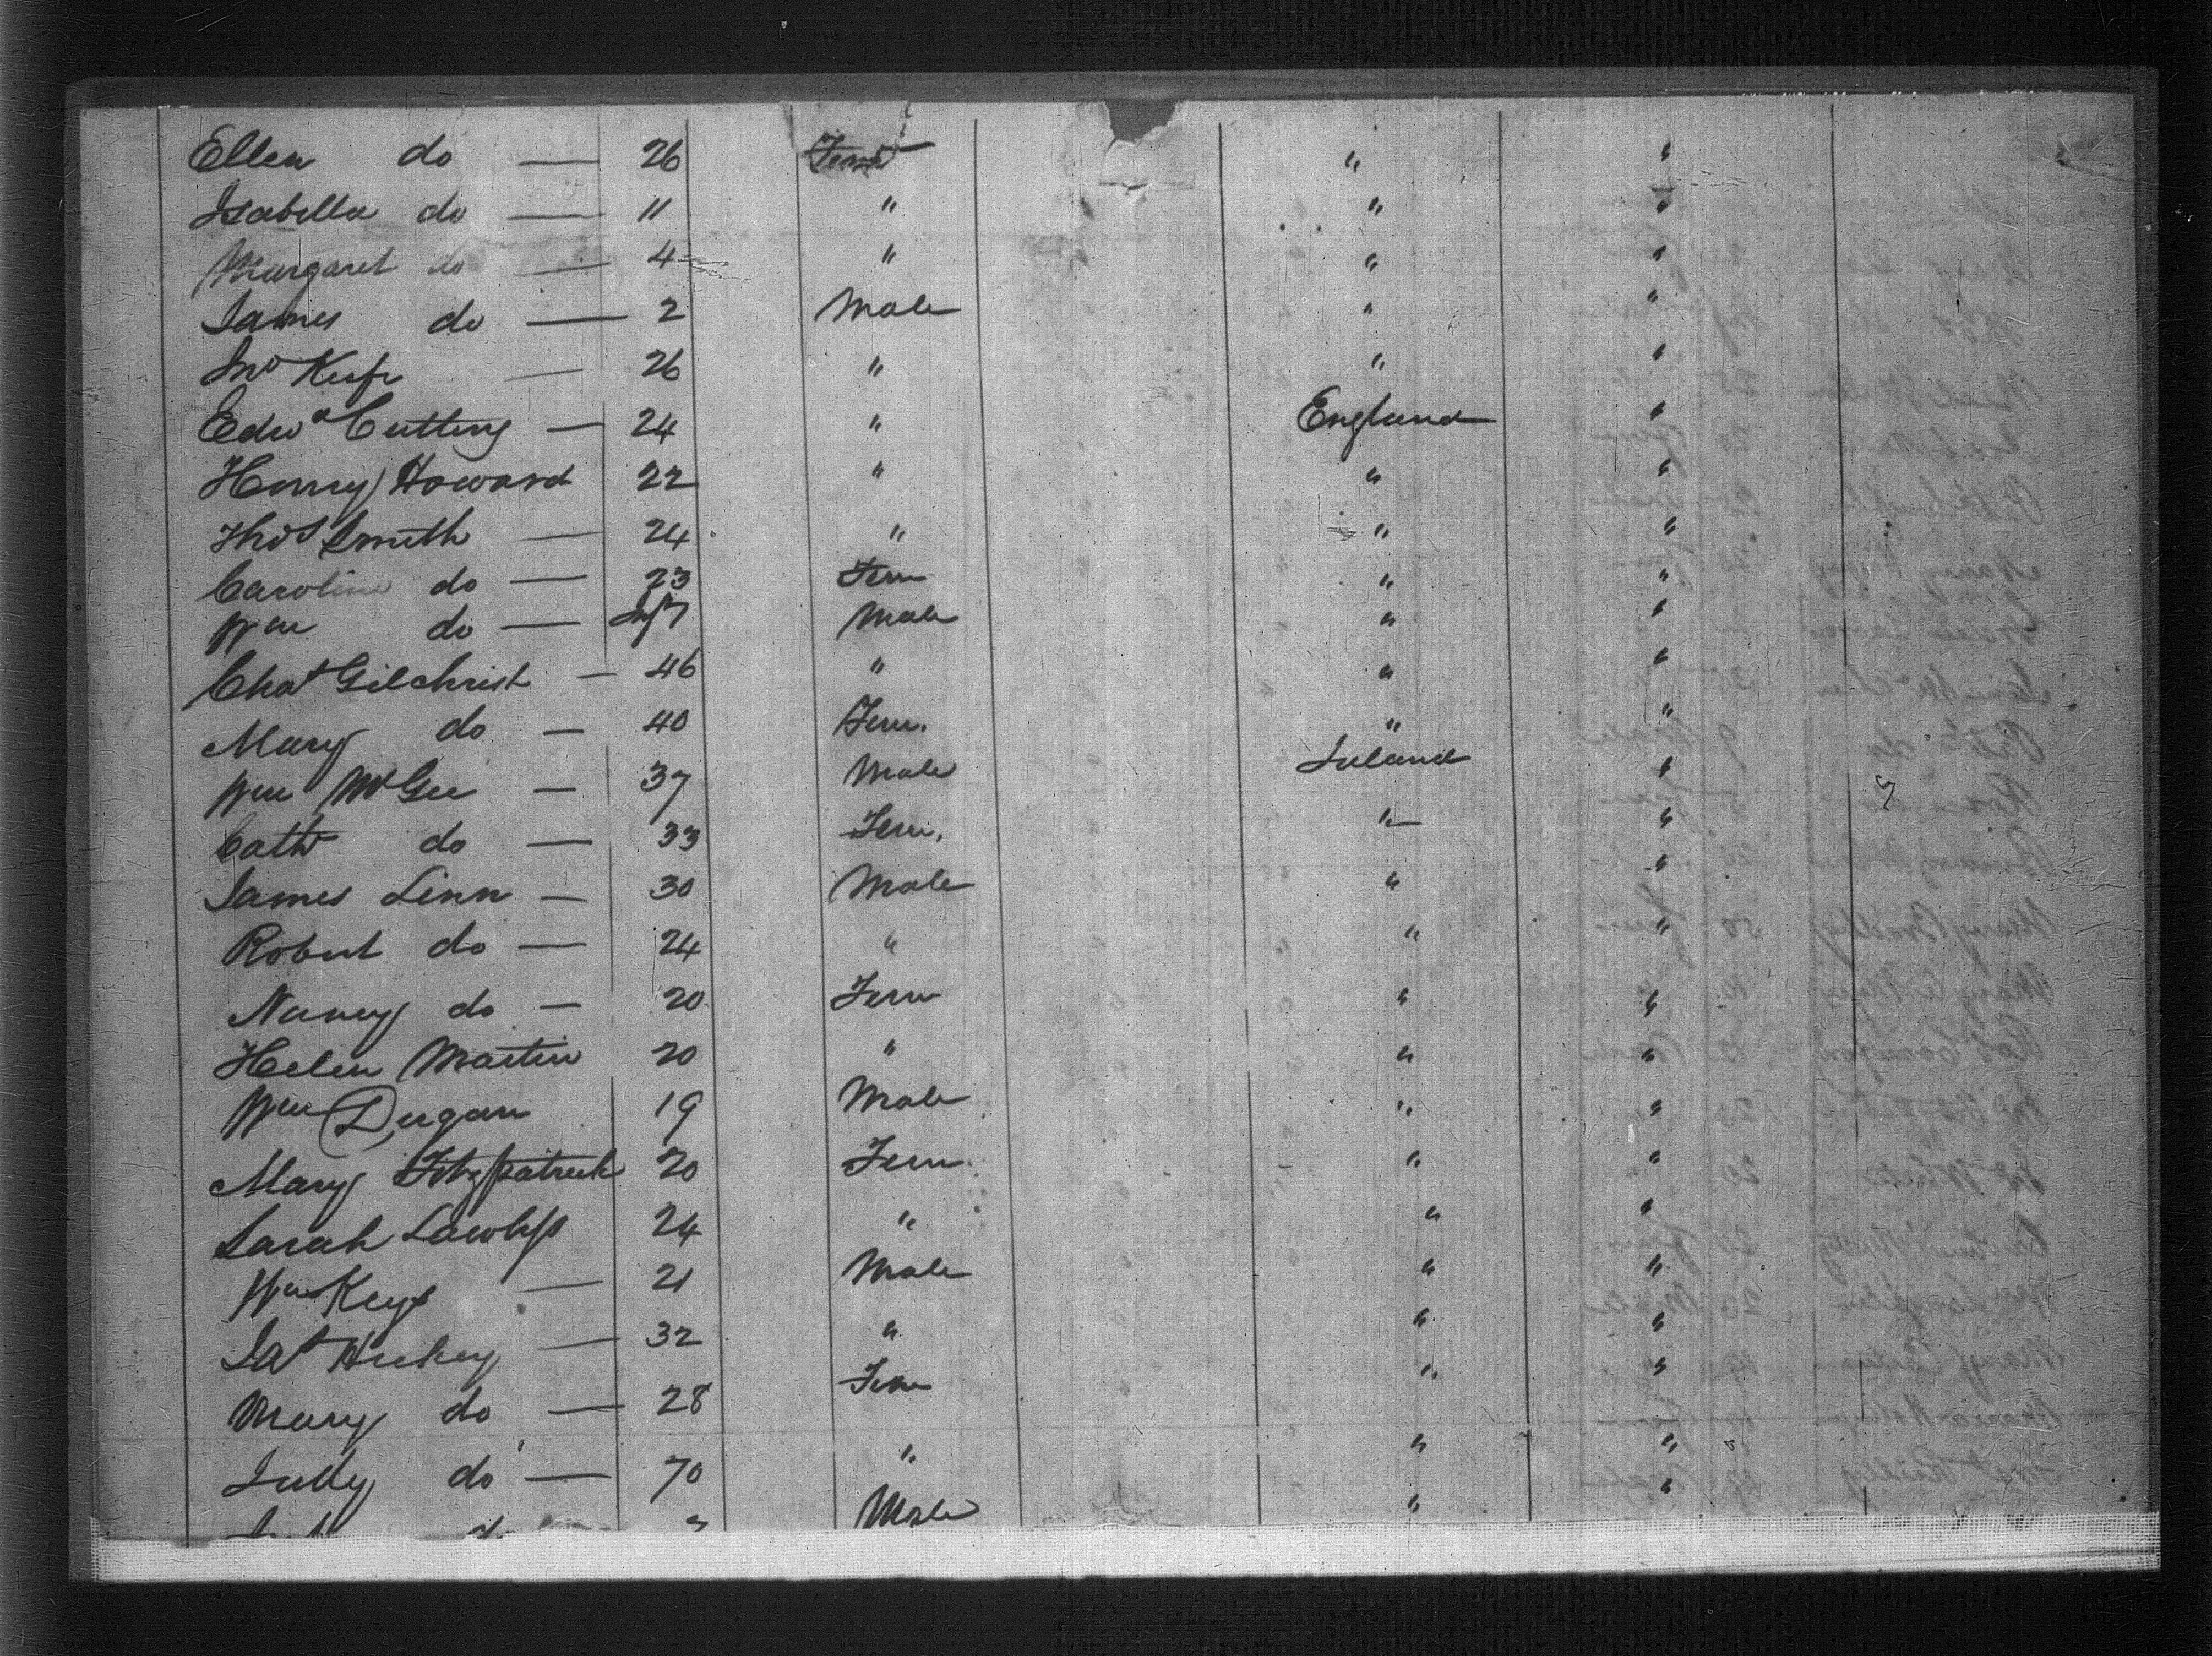 Ellen do — 26 Fem " "
Isabella do — 11 " " "
Margaret do — 4 " " "
James do — 2 Male " "
Jno — 26 " " "
Edwd Cutting — 24 " England "
Henry Howard 22 " " "
Thos Smith — 24 " " "
Caroline do — 23 Fem " "
Wm do — Male " "
Chas Gilchrist — 46 " " "
Mary do — 40 Fem. " "
Wm McGee — 37 Male Ireland "
Cath do — 33 Fem. " "
James Linn — 30 Male " "
Robert do — 24 " " "
Nancy do — 20 Fem " "
Helen Martin 20 " " "
Wm Dugan 19 Male " "
Mary Fitzpatrick 20 Fem. " "
Sarah 24 " " "
Wm Keys — 21 Male " "
Jas Hickey — 32 " " "
Mary do — 28 Fem " "
Judy do — 70 " " "
do Male " "